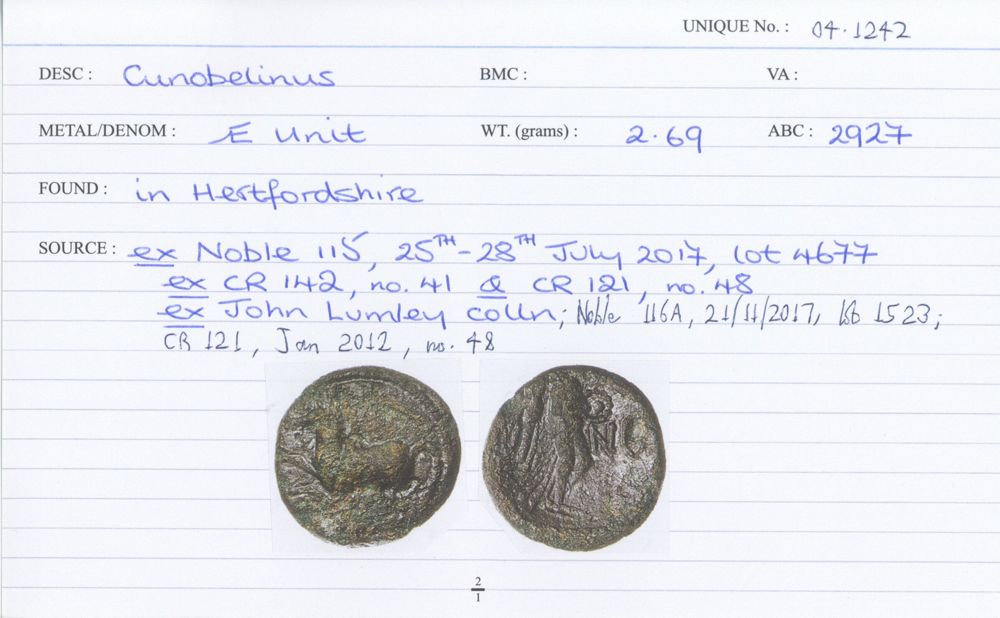 UNIQUE No. : 04.1242
DESC : Cunobelinus BMC : VA :
METAL/DENOM : Æ Unit WT. (grams) : 2.69 ABC : 2927
FOUND : in Hertfordshire
SOURCE : ex Noble 115, 25TH-28TH July 2017, lot 4677
ex CR 142, no. 41 & CR 121, no. 48
ex John Lumley colln; Noble 116A, 21/11/2017, lot 1523;
CR 121, Jan 2012, no. 48
NI C
2
1